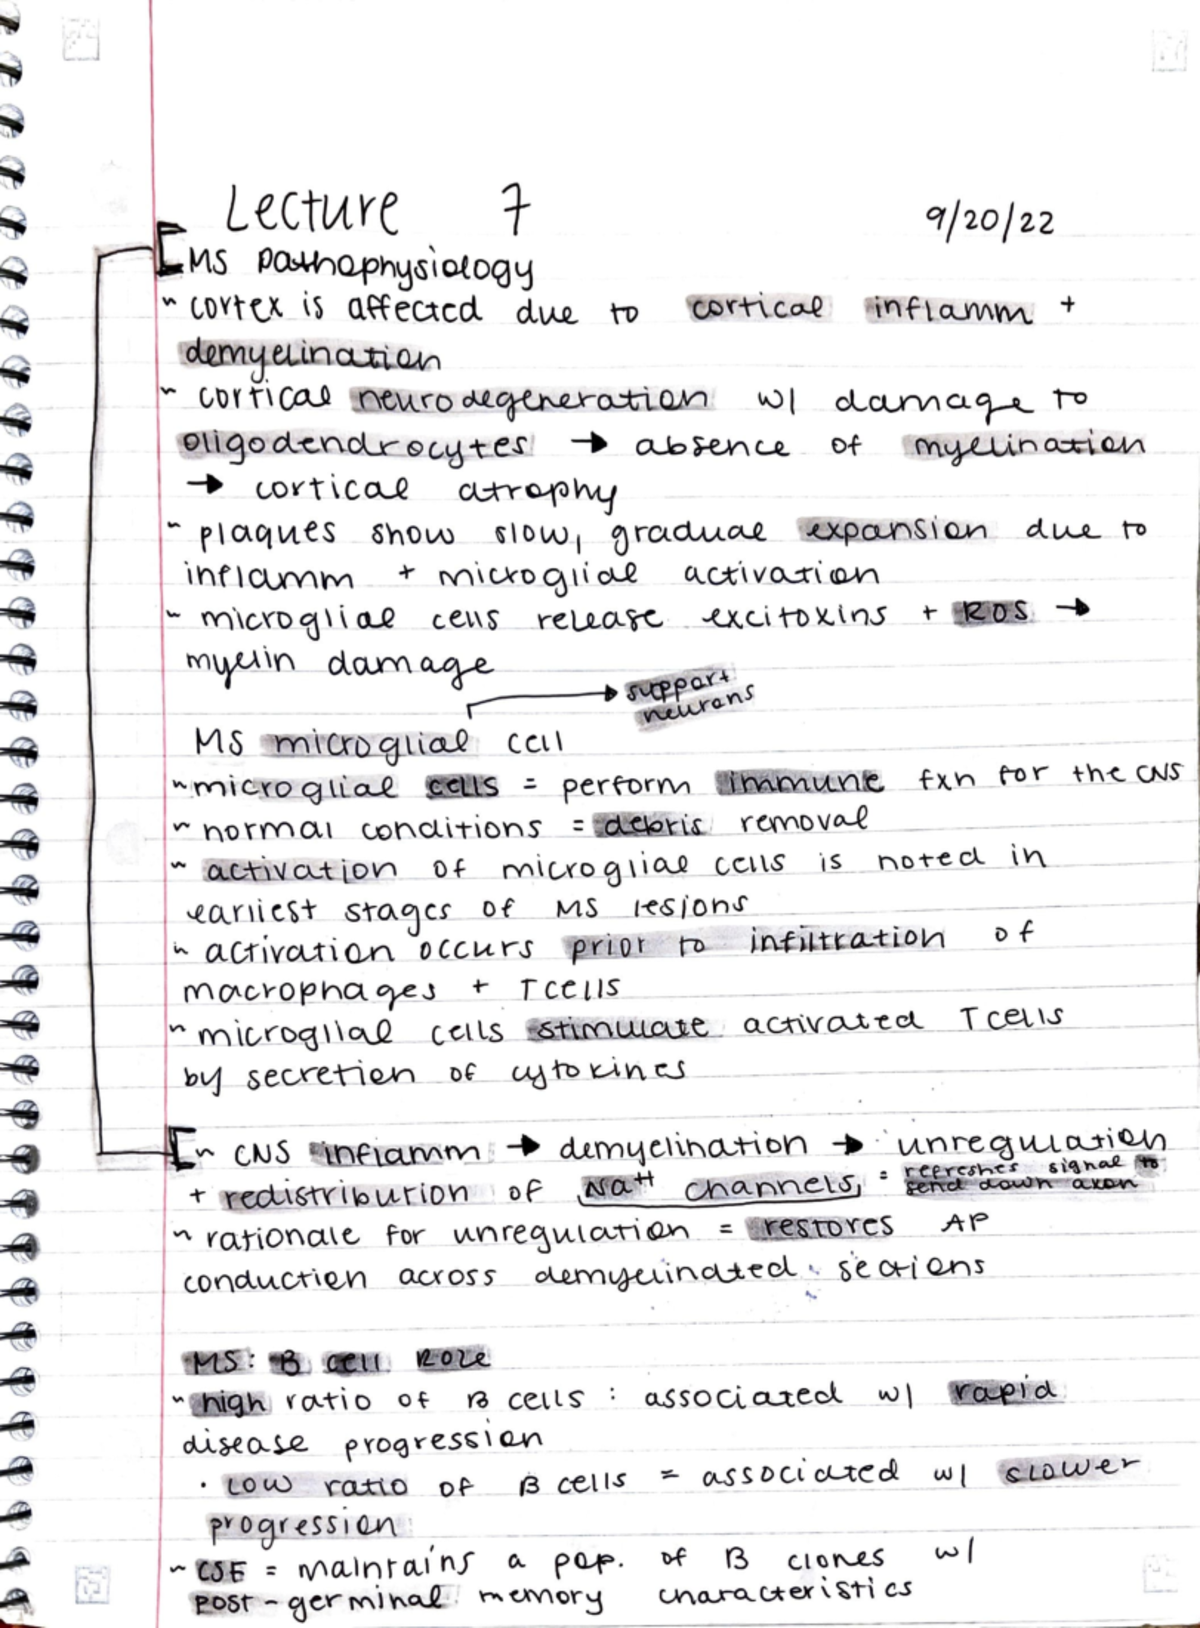 Lecture 7
9/20/22
MS pathophysiology
~ cortex is affected due to cortical inflamm +
demyelination
~ cortical neurodegeneration w/ damage to
oligodendrocytes → absence of myelination
→ cortical atrophy
~ plaques show slow, gradual expansion due to
inflamm + microglial activation
~ microglial cells release excitoxins + ROS →
myelin damage
support
neurons
MS microglial cell
~ microglial cells = perform immune fxn for the CNS
~ normal conditions = debris removal
~ activation of microglial cells is noted in
earliest stages of MS lesions
~ activation occurs prior to infiltration of
macrophages + T cells
~ microglial cells stimulate activated T cells
by secretion of cytokines
~ CNS inflamm → demyelination → unregulation
+ redistribution of Na++ channels, = refreshes signal to
send down axon
~ rationale for unregulation = restores AP
conduction across demyelinated sections
MS: B cell Role
~ high ratio of B cells : associated w/ rapid
disease progression
· low ratio of B cells = associated w/ slower
progression
~ CSF = maintains a pop. of B clones w/
post-germinal memory characteristics